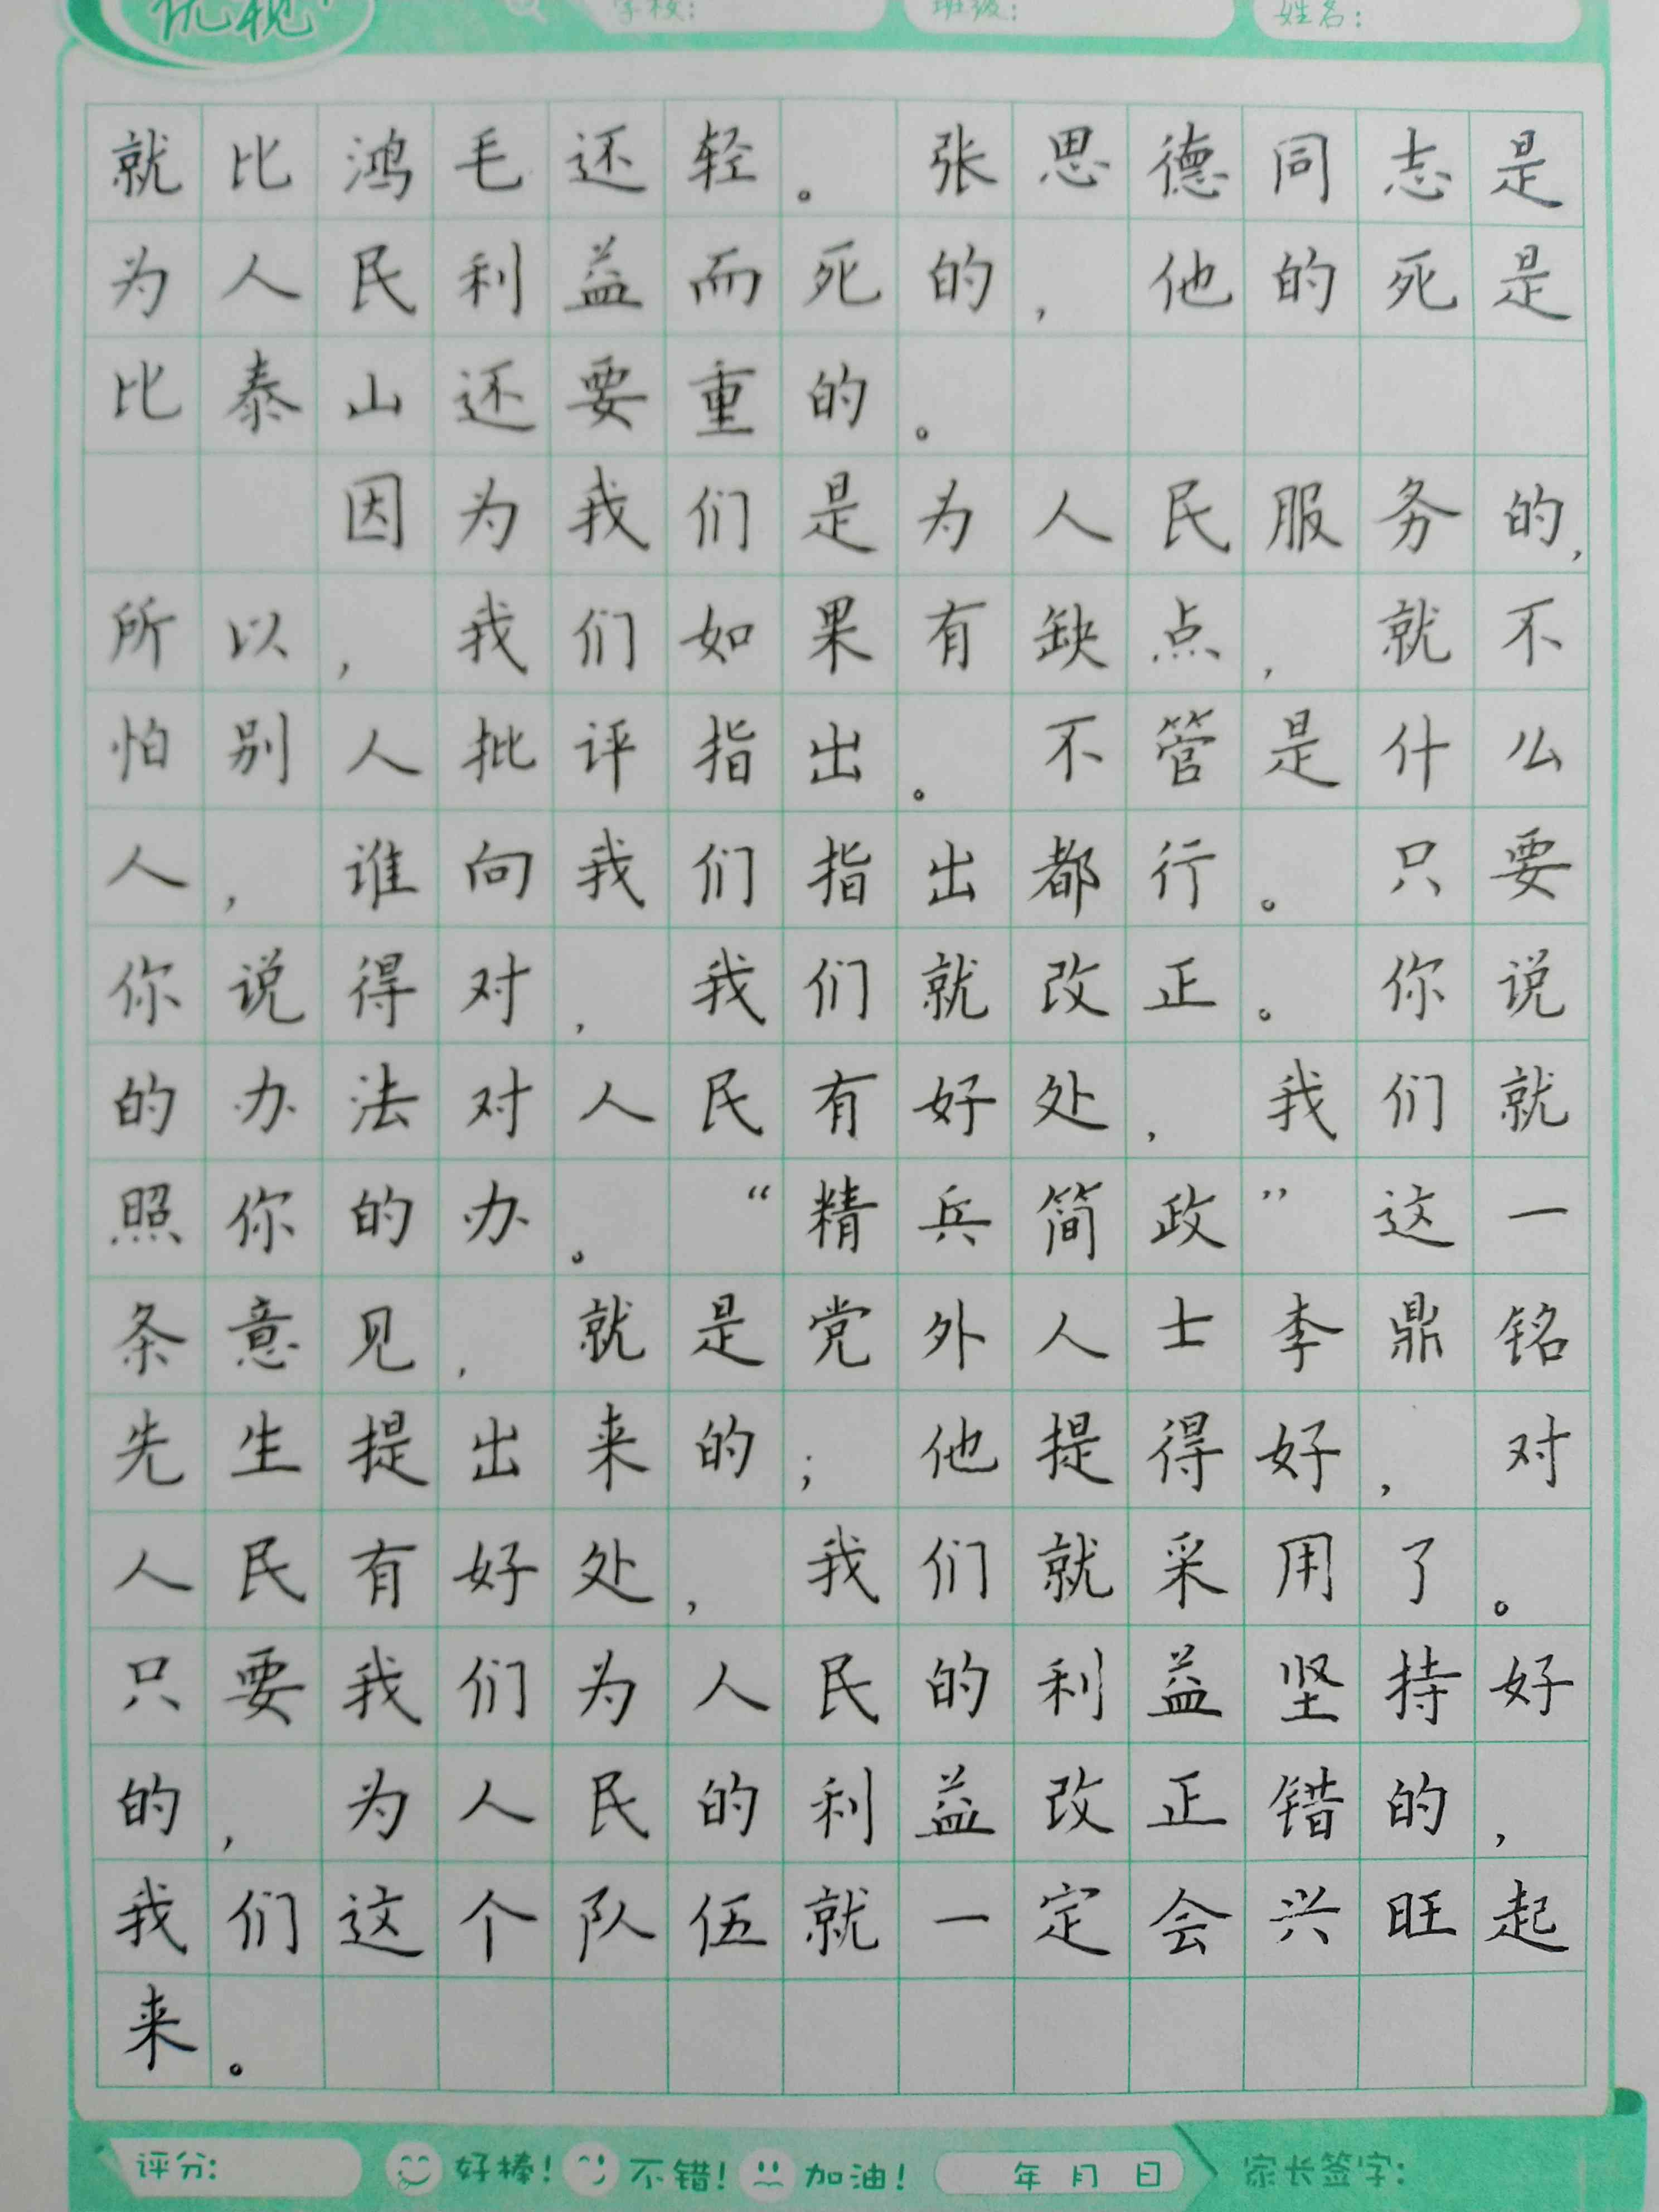 优视
学校： 班级： 姓名：
就比鸿毛还轻。张思德同志是
为人民利益而死的，他的死是
比泰山还要重的。
因为我们是为人民服务的，
所以，我们如果有缺点，就不
怕别人批评指出。不管是什么
人，谁向我们指出都行。只要
你说得对，我们就改正。你说
的办法对人民有好处，我们就
照你的办。“精兵简政”这一
条意见，就是党外人士李鼎铭
先生提出来的；他提得好，对
人民有好处，我们就采用了。
只要我们为人民的利益坚持好
的，为人民的利益改正错的，
我们这个队伍就一定会兴旺起
来。
评分: 好棒! 不错! 加油! 年 月 日 家长签字: